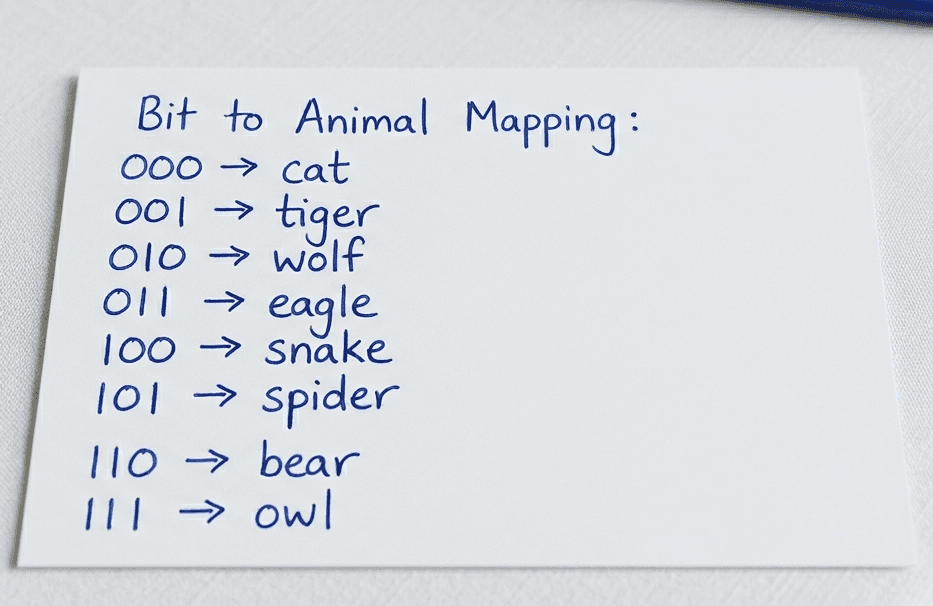 Bit to Animal Mapping:
000 → cat
001 → tiger
010 → wolf
011 → eagle
100 → snake
101 → spider
110 → bear
111 → owl